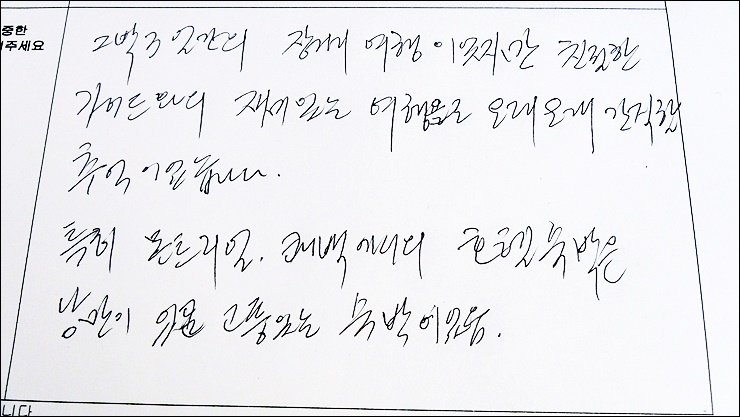 중한
주세요
2박3일간의 장거리 여행이었지만 친절한
가이드와의 재미있는 여행으로 오래오래 간직할
추억이었습니다.
특히 몬트리얼, 퀘백에서의 호텔숙박은
낭만이 있고 고풍있는 숙박이었음.
니다